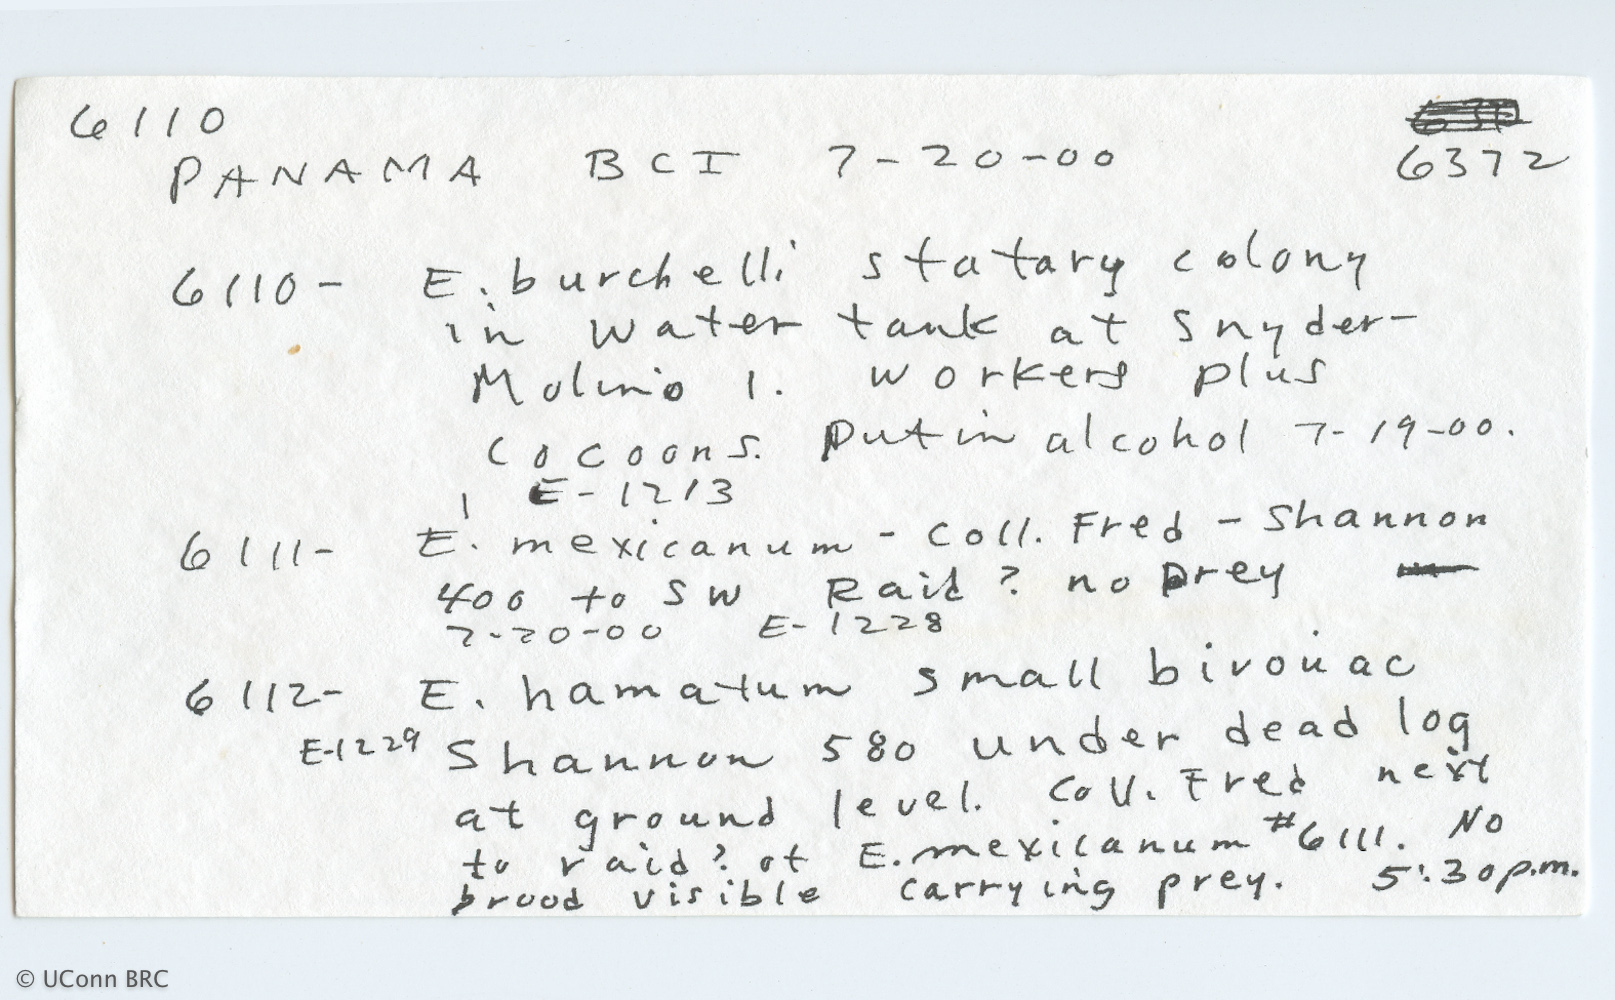 6110
6372
PANAMA BCI 7-20-00
6110- E. burchelli statary colony
in water tank at Snyder-
Molino 1. workers plus
cocoons. Put in alcohol 7-19-00.
E-1213
6111- E. mexicanum - Coll. Fred - Shannon
400 to SW Raid? no prey
7-20-00 E-1228
6112- E. hamatum small bivouac
E-1229 Shannon 580 under dead log
at ground level. Coll. Fred next
to raid? of E. mexicanum #6111. No
brood visible carrying prey. 5:30 p.m.
© UConn BRC